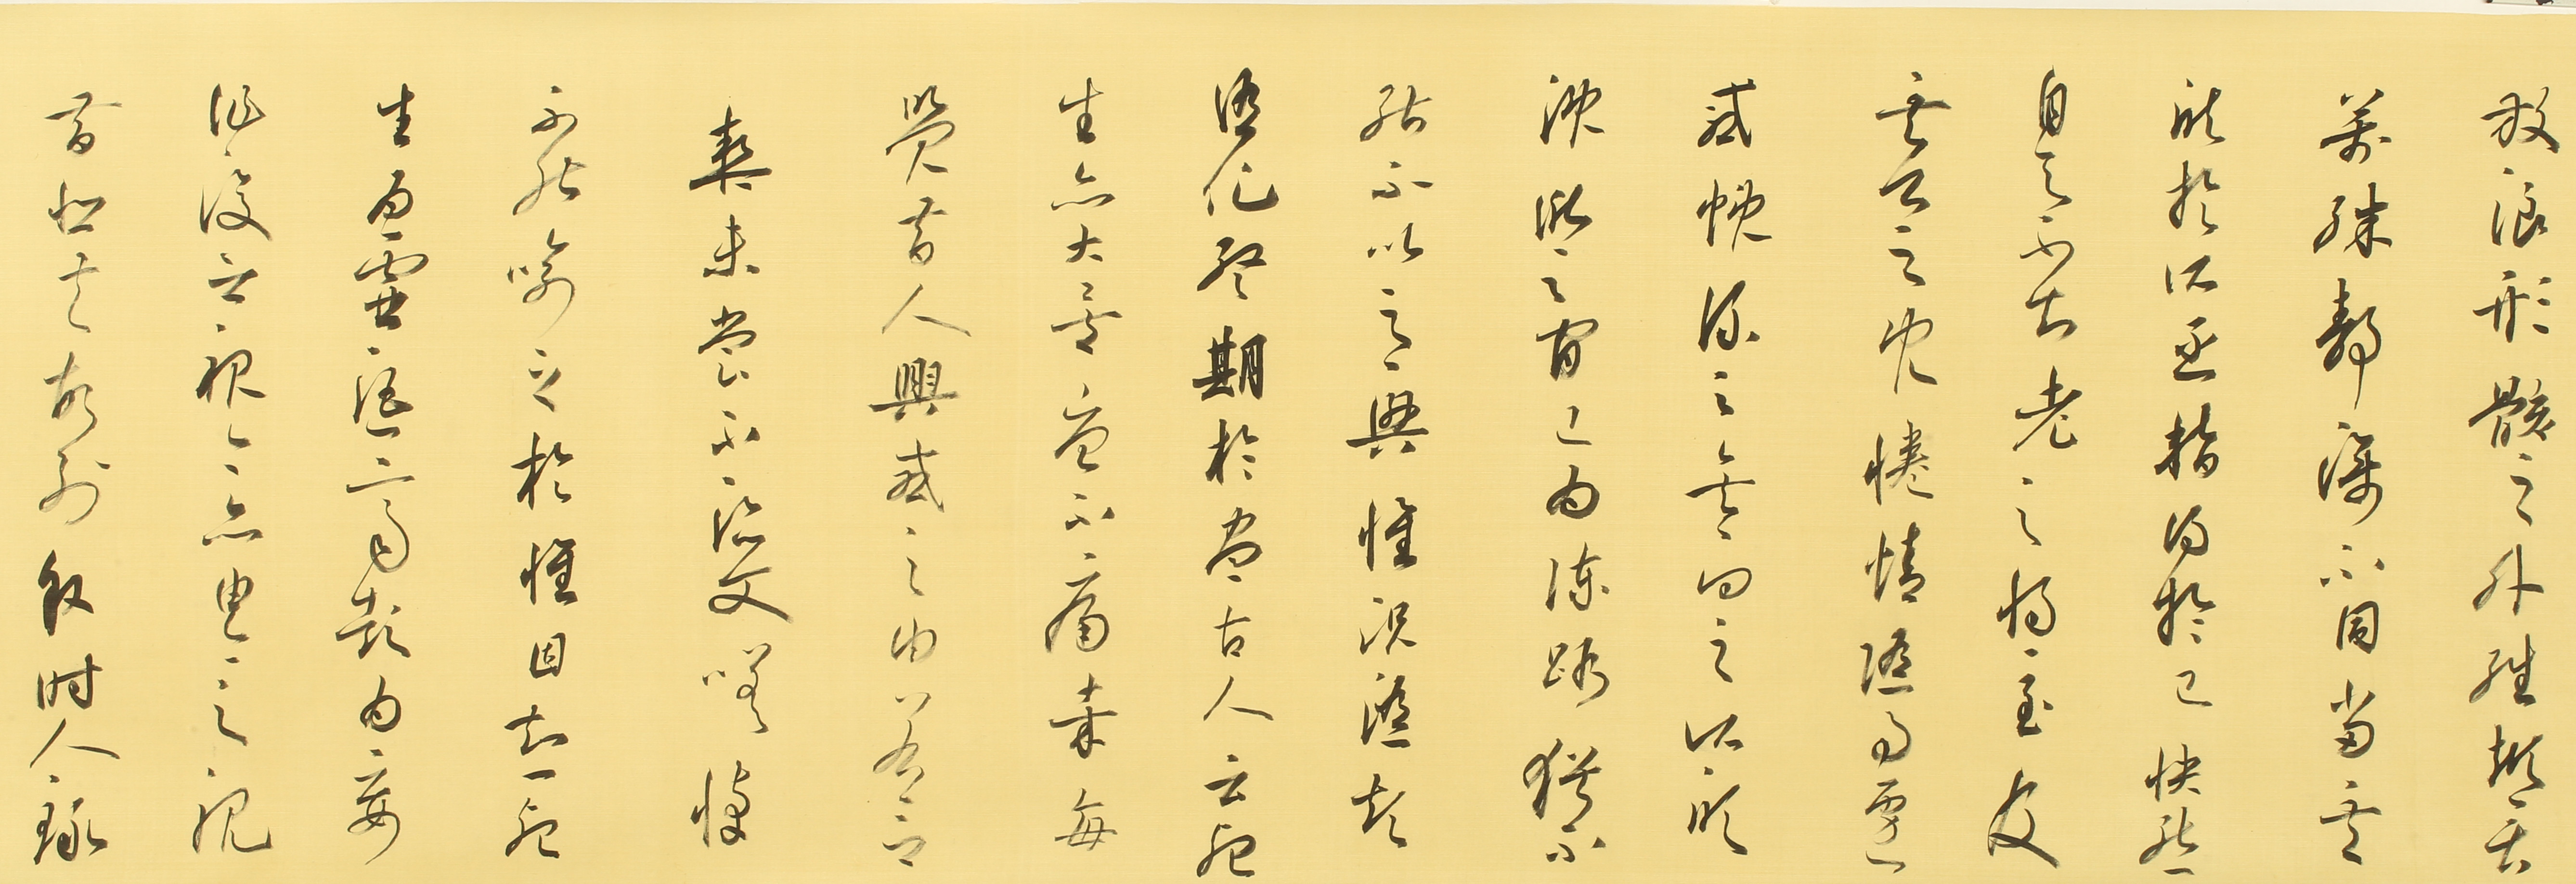 放浪形骸之外雖趣舍
萬殊静躁不同當其
欣於所遇暫得於己快然
自足不知老之將至及
其所之既惓情隨事遷
感慨係之矣向之所欣
俛仰之間已為陳迹猶不
能不以之興懷況脩短
隨化終期於盡古人云死
生亦大矣豈不痛哉每
覽昔人興感之由若合一
契未嘗不臨文嗟悼
不能喻之於懷固知一死
生為虛誕齊彭殤為妄
作後之視今亦由今之視
昔悲夫故列叙時人錄